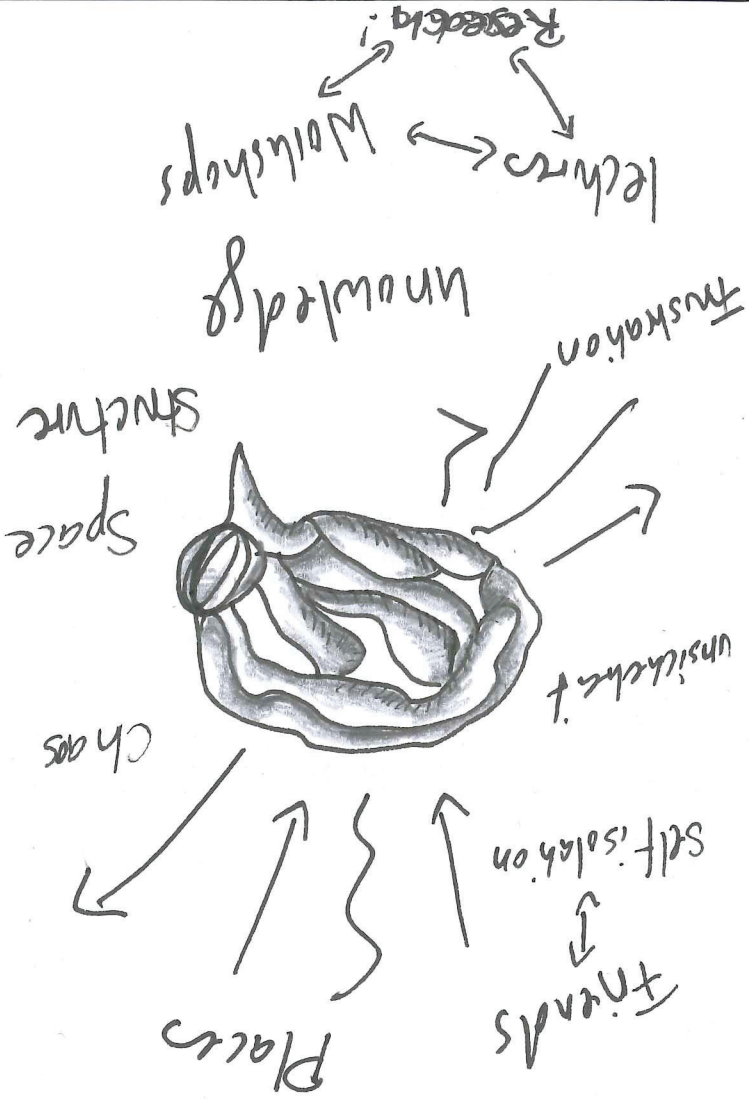 Friends
Places
Self isolation
Chaos
unsicherheit
Space
Structure
Frustration
knowledge
lectures
Workshops
Research!